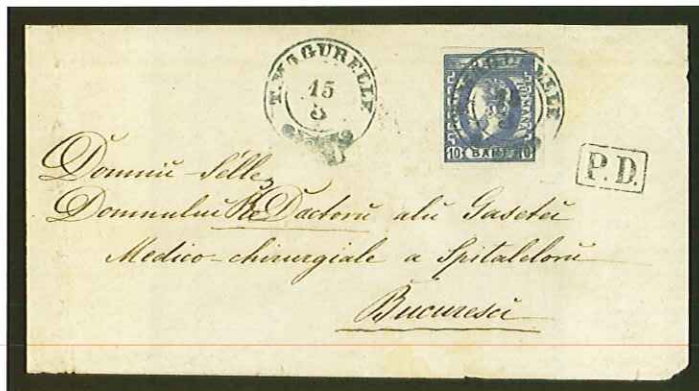 T. MAGURELLE
15
8
10 BANI 10
P.D.
Domniĭ-Selle,
Domnului ReDactorŭ alŭ Gasetei
Medico-chirurgiale a Spitalelorŭ
Bucuresci